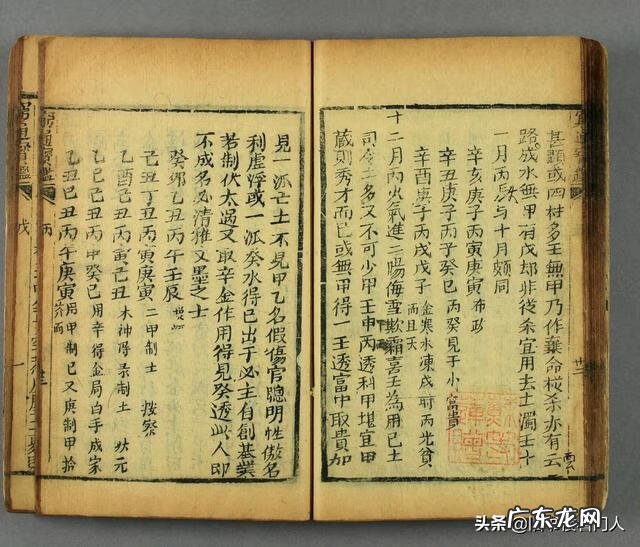 甚顯或四柱多壬無甲乃作棄命從杀亦有云
路成水無甲有戊却非從杀宜用去土濁壬十
一月丙火與十月頗同
辛亥庚子丙寅庚寅 布政
辛丑庚子丙子癸巳 丙癸見于小富貴
辛酉庚子丙戌戊子 金寒水凍戌时丙光貧而且夭
十二月丙火氣進二陽侮雪欺霜喜壬為用己土
司令土多又不可少甲壬申丙透科甲堪宜甲
藏則秀才而已或無甲得一壬透富中取貴加
見一派己土不見甲乙名假傷官聰明性傲名
利虛浮或一派癸水得己出于必主自創基業
若制伏太過又取辛金作用得見癸透此人即
不成名必清雅文墨之士
癸卯乙丑丙午壬辰
己丑丁丑丙寅庚寅 二甲制土 按察
乙酉己丑丙寅己丑 木神得录制土 状元
乙巳己丑丙申癸巳 用辛得金局白手成家
乙丑己丑丙午庚寅 用甲制己又庚制甲拾芥而
窮通寶鑑
丙
戊
头条
广东龙网